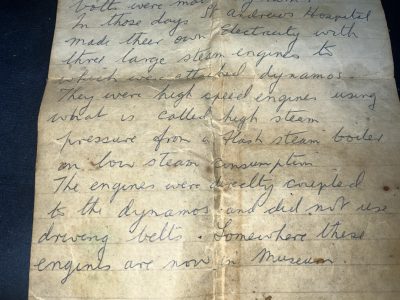 bolts were ma
In those days St Andrews Hospital
made their own Electricity with
three large steam engines to
which were attached dynamos
They were high speed engines using
what is called high steam
pressure from a flash steam boiler
on low steam consumption
The engines were directly coupled
to the dynamos and did not use
driving belts. Somewhere these
engines are now in Museum